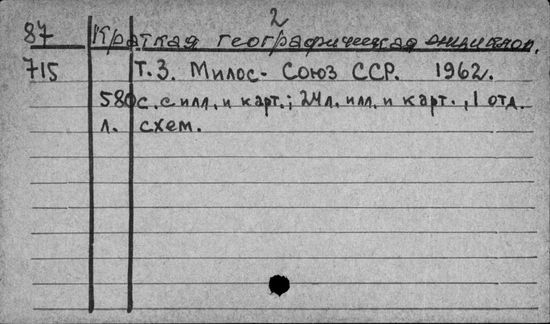 2
87 Краткая географическая энциклоп.
715 Т.3. Милос- Союз ССР. 1962.
580с. с илл. и карт.; 24л. илл. и карт., 1 отд.
л. схем.